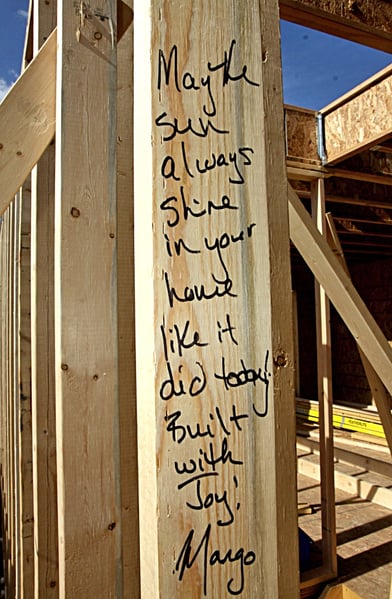 May the
sun
always
shine
in your
home
like it
did today!
Built
with
Joy!
Margo